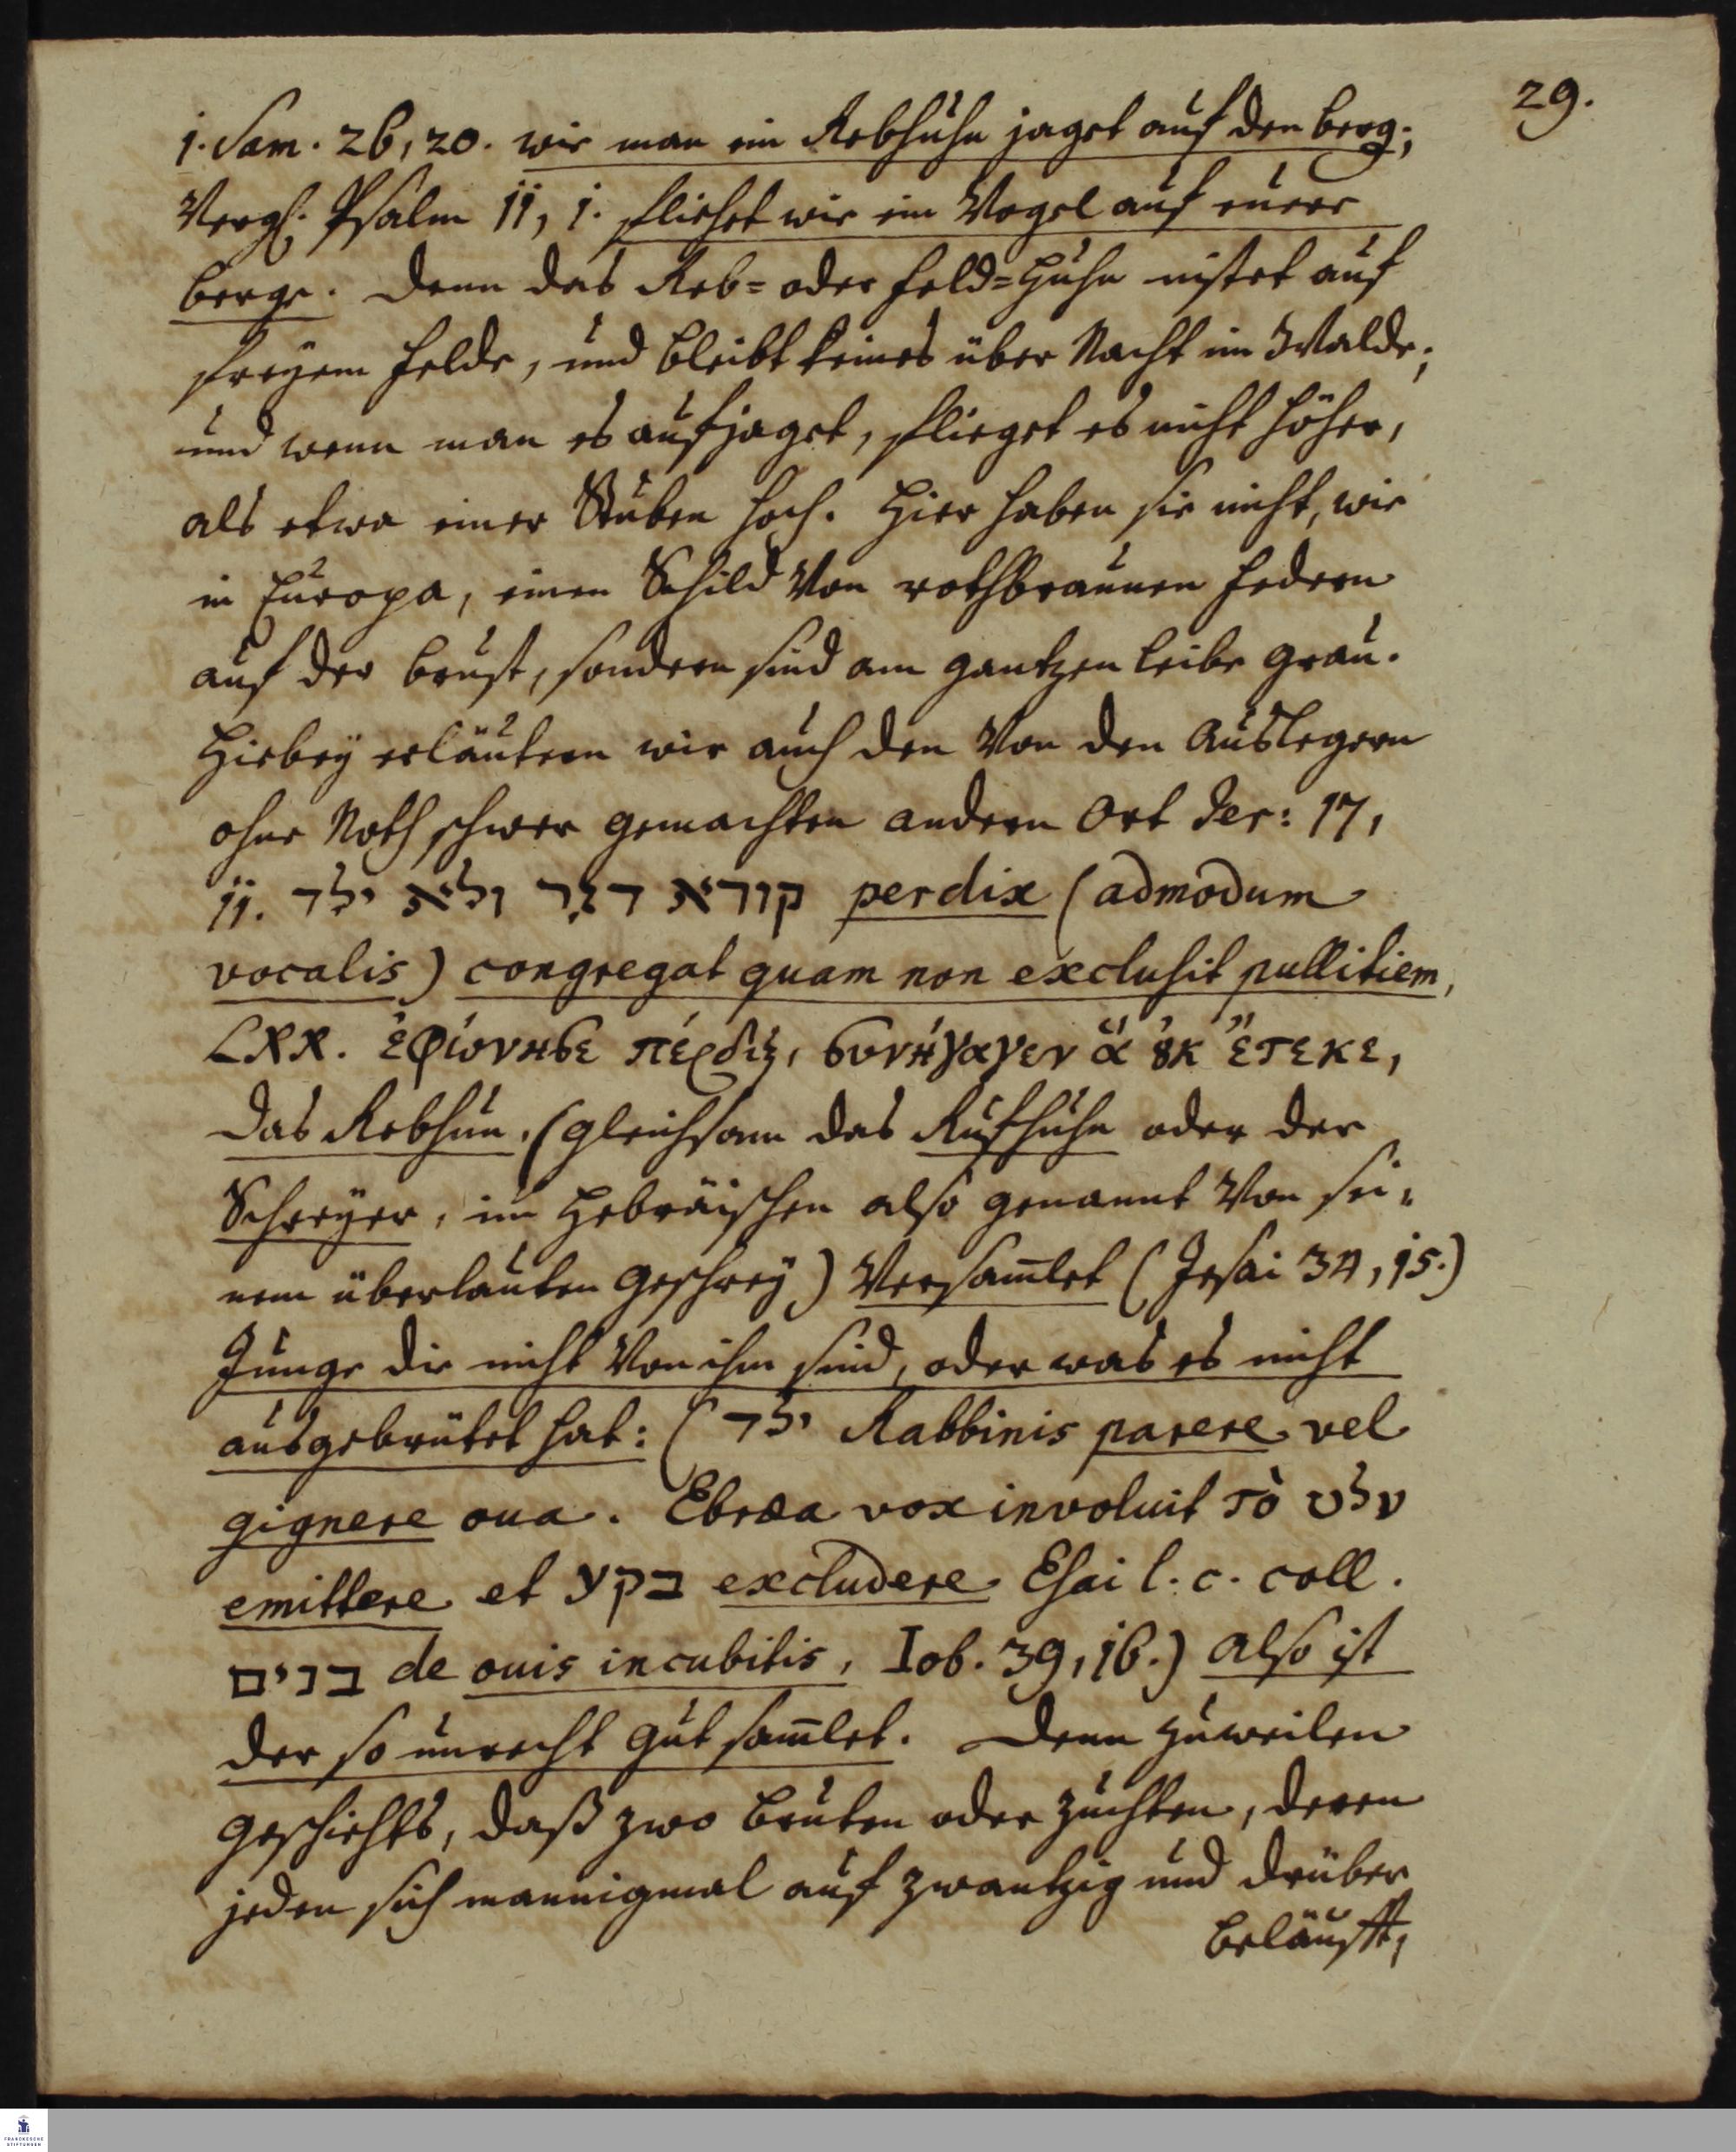 29.
1. Sam. 26, 20. wie man ein Rebhuhn jaget auf den berg;
Vergl. Psalm 11, 1. fliehet wie ein Vogel auf euere
berge. Denn das Reb= oder Feld=Huhn nistet auf
freyem Felde, und bleibt keines über Nacht im Walde;
und wenn man es aufjaget, flieget es nicht höher,
als etwa einer Stuben hoch. Hier haben sie nicht, wie
in Europa, einen Schild von rothbraunen Federn
auf der brust, sondern sind am gantzen Leibe grau.
Hiebey erläutern wir auch den von den Auslegern
ohne Noth schwer gemachten andern Ort Jer: 17,
11. קורא דגר ולא ילד perdix (admodum
vocalis) congregat quam non exclusit pullitiem,
LXX. ἐφώνησε πέρδιξ, συνήγαγεν ἃ ȣ̓κ ἔτεκε,
Das Rebhun, (gleichsam das Rufhuhn oder der
Schreyer, im Hebräischen also genannt von sei=
nem überlauten Geschrey) versam̅let (Jesai 34, 15.)
Junge die nicht von ihm sind, oder was es nicht
ausgebrütet hat: (ילד Rabbinis parere vel
gignere oua. Ebræa vox involuit τὸ מלט
emittere et בקע excludere Esai l. c. coll.
בנים de ouis incubitis, Iob. 39, 16.) Also ist
der so unrecht Gut sam̅let. Denn zuweilen
geschiehts, daß zwo bruten oder Zuchten, deren
jeden sich mannigmal auf zwantzig und drüber
beläufft,
FRANCKESCHE
STIFTUNGEN